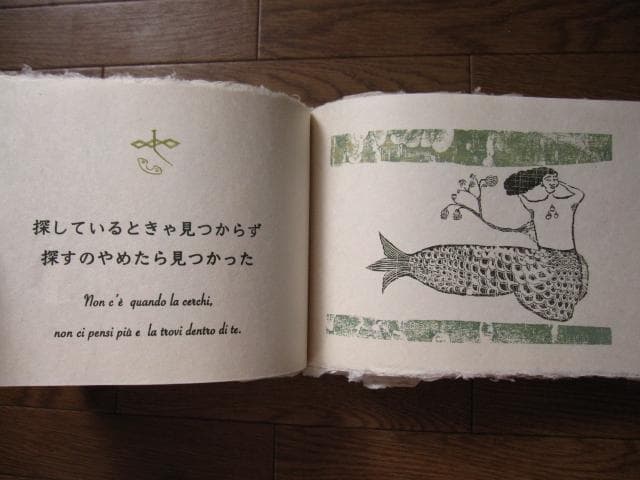 探しているときゃ見つからず
探すのやめたら見つかった
Non c'è quando la cerchi,
non ci pensi più e la trovi dentro di te.